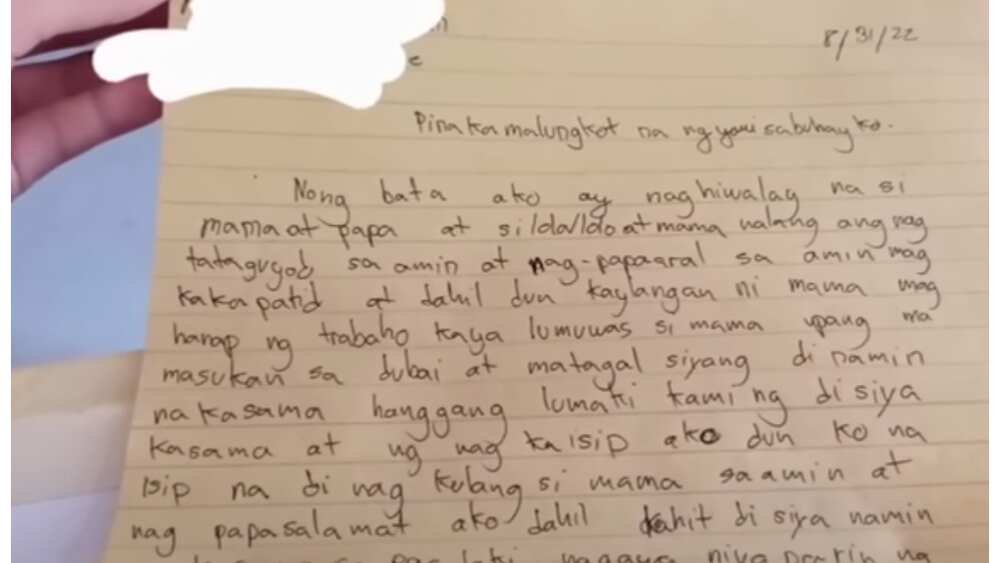 8/31/22
Pinakamalungkot na ngyari sa buhay ko.
Nong bata ako ay naghiwalag na si
mama at papa at si lola/lolo at mama nalang ang nag
tatagugod sa amin at nag-papaaral sa amin mag
kakapatid at dahil dun kaylangan ni mama mag
hanap ng trabaho kaya lumuwas si mama upang ma
masukan sa dubai at matagal siyang di namin
nakasama hanggang lumaki kami ng di siya
kasama at ng nag kaisip ako dun ko na
isip na di nag kulang si mama sa amin at
nag papasalamat ako dahil kahit di siya namin
nagawa niya parin ng